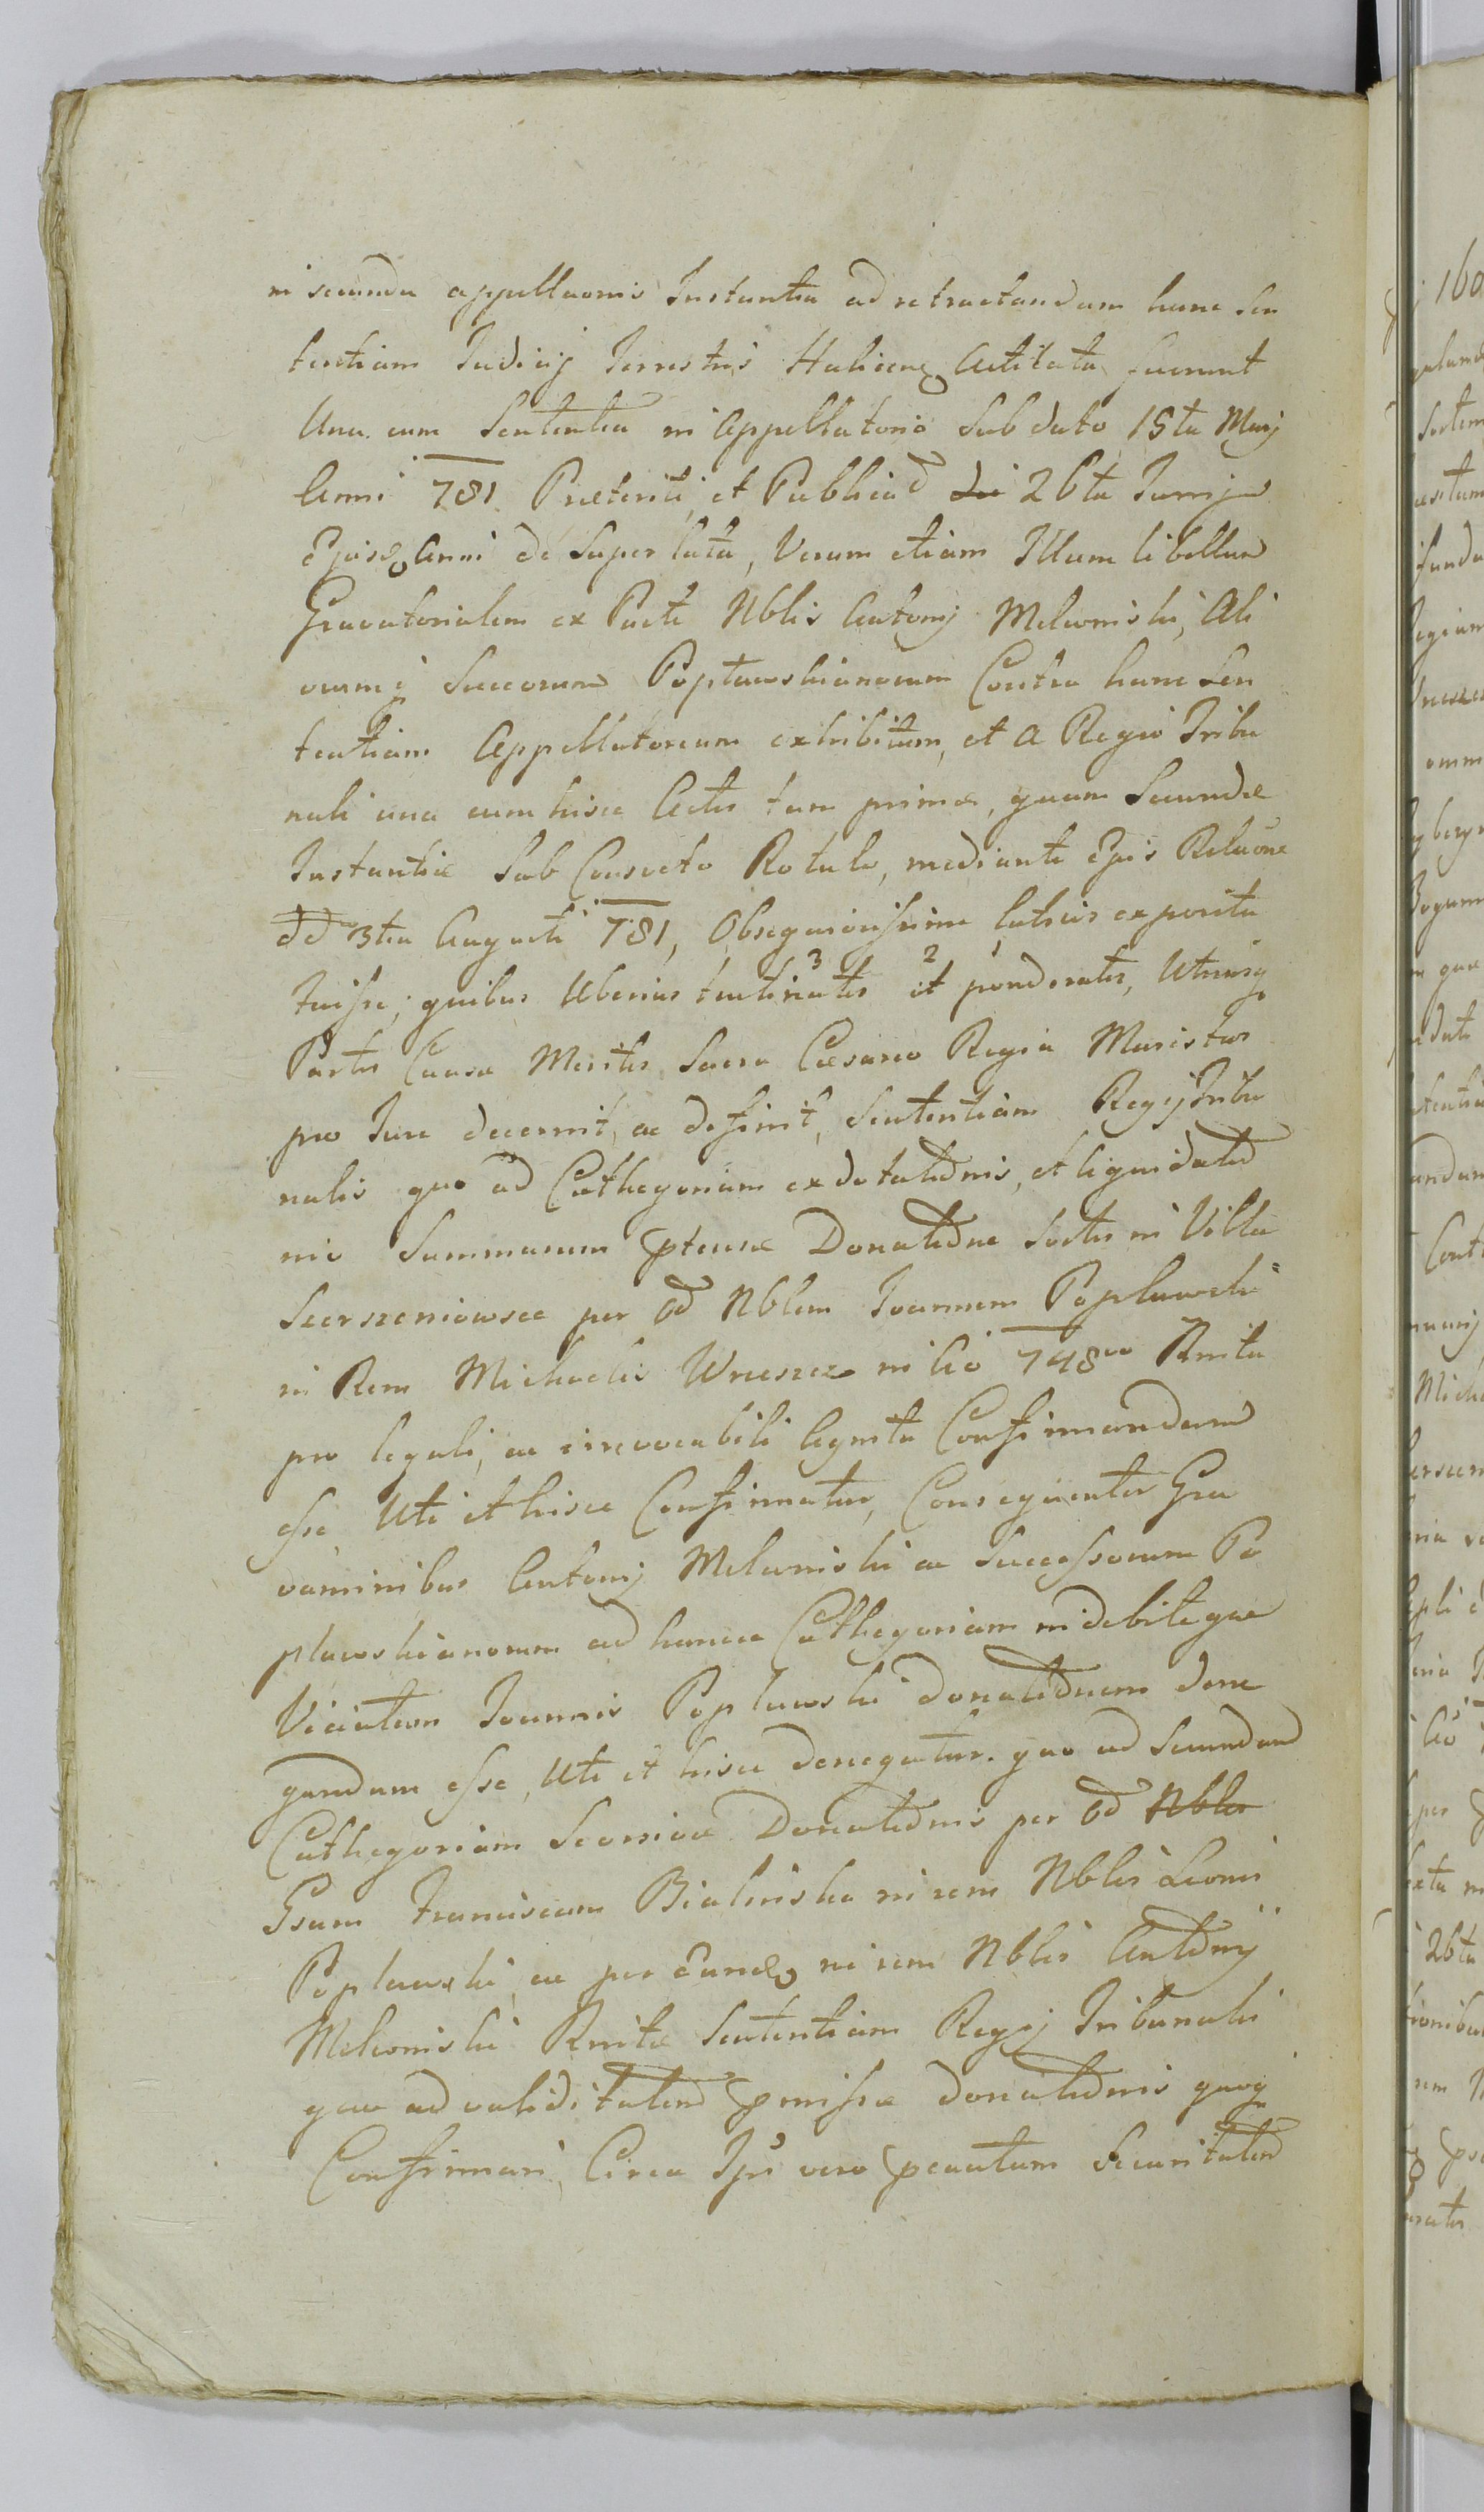 in secunda appellaonis Instantia ad retractandum hanc Sen
tentiam Judicij Terrestris Halicens Actitata fuerunt
Una cum Sententia in Appellatorio Sub dato 15ta Maij
Anni 781 Præteriti, et Publicad di 26ta Junij
Ejusd Anni de Super lata, Verum etiam Illum libellum
Gravatorialem ex Parte Nblis Antonij Melewniski, Ali
orumq Succorum Popławskianorum Contra hanc Sen
tentiam Appellatoream exhibitum, et a Regio Tribu
nali una cum hisce Actis tam primæ, quam Secundæ
Instantiæ Sub Consveto Rotulo, mediante Ejus Relaõne
dd 3tia Augusti 781, Obsequiosissime latius exposita
fuisse; quibus Uberius trutinatis 3 et 2 ponderatis 1, Utriusq
Partis Causæ Meritis Sacra Cæsareo Regia Maiestas
pro Jure decernit, ac definit, Sententiam Regij Tribu
nalis quo ad Cathegoriam exdotationis, et liquidatio
nis Summarum ptensæ Donatione Sortis in Villa
Scerszeniowce per Gd Nblem Joannem Popławski
in Rem Michaelis Wreszcz in Aõ 748vo Rnita
pro legali, ac irrevocabili Agnita Confirmandam
esse Uti et hisce Confirmatur, Consequenter Gra
vaminibus Antonij Melewniski ac Successorum Po
pławskianorum ad hancce Cathegoriam indebite qua
Viciatam Joannis Popławski donationem dene
gandum esse, Uti et hisce denegatur. quo ad Secundam
Cathegoriam Seorsivæ Donationis per Gd Nbles
Gsum Franciscam Bialinska in rem Nblis Leonis
Popławski, ac per Eund in rem Nblis Antonij
Melewniski Rnitæ Sententiam Regij Tribunalis
qua ad validitatem pmissæ donationis quoq
Confirmari, Circa Ips vero peautam Securitatem